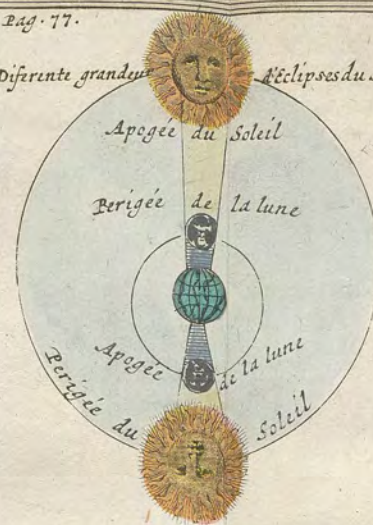 Pag. 77.
Diferente grandeur d'Eclipses du
Apogée du Soleil
Perigée de la lune
Apogée de la lune
Perigée du Soleil